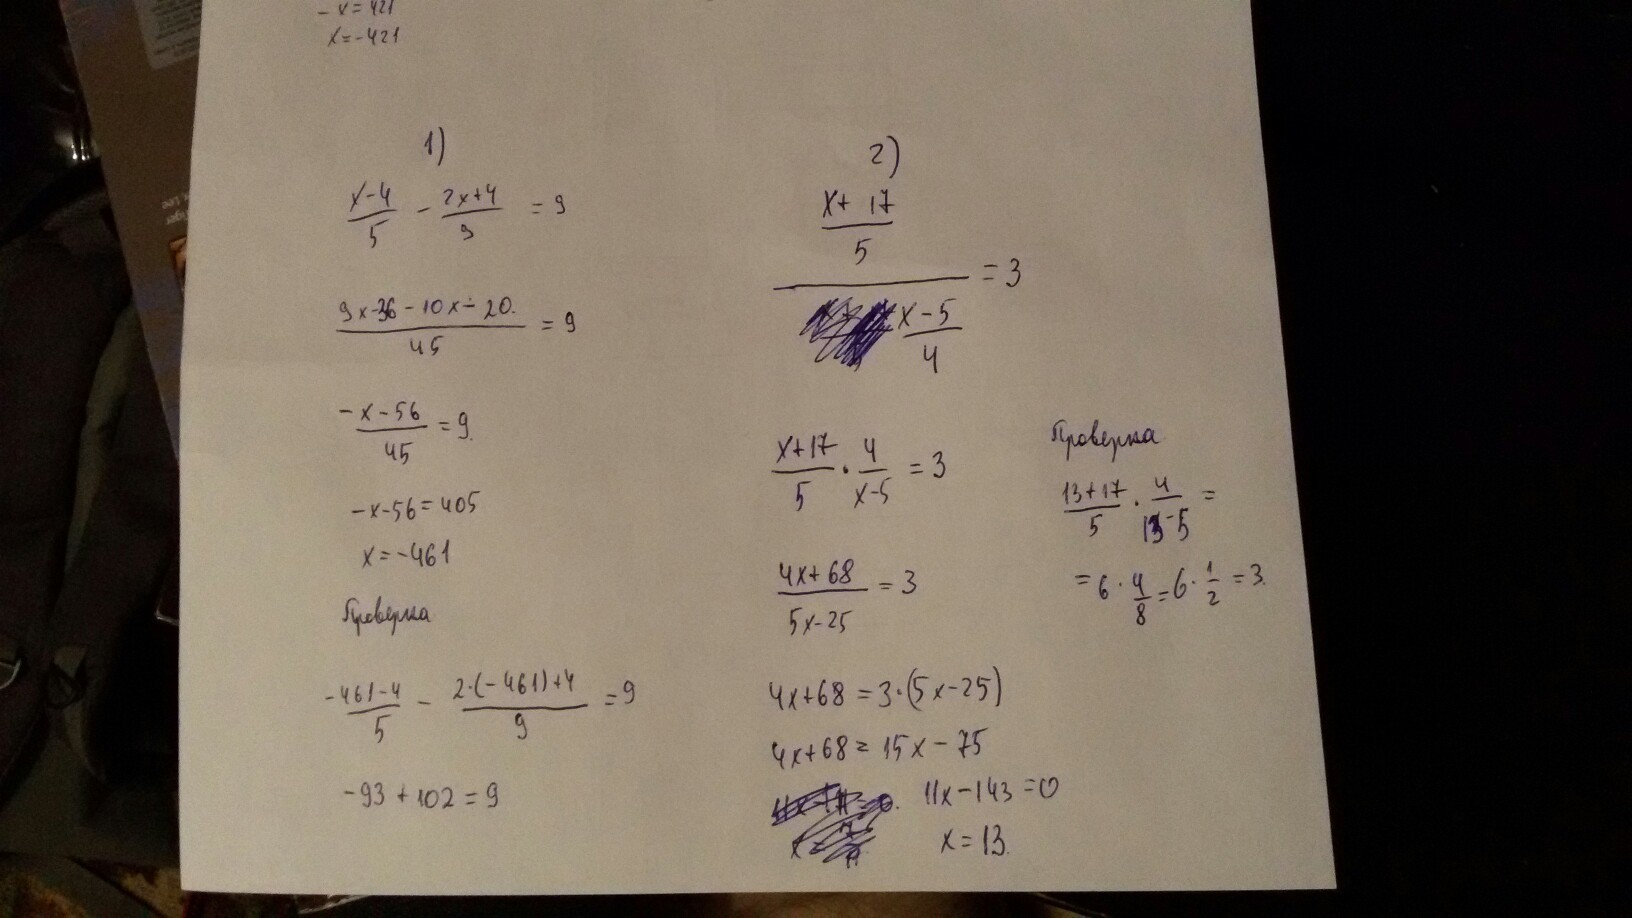 - x = 421
x = -421
1)
(x-4)/5 - (2x+4)/9 = 9
(9x-36-10x-20.)/45 = 9
(-x-56)/45 = 9.
-x-56=405
x=-461
Проверка
(-461-4)/5 - (2·(-461)+4)/9 = 9
-93+102=9
2)
((x+17)/5)/((x-5)/4) = 3
(x+17)/5 · 4/(x-5) = 3
(4x+68)/(5x-25) = 3
4x+68=3·(5x-25)
4x+68=15x-75
11x-143=0
x=13.
Проверка
(13+17)/5 · 4/(13-5) =
= 6 · 4/8 = 6 · 1/2 = 3.